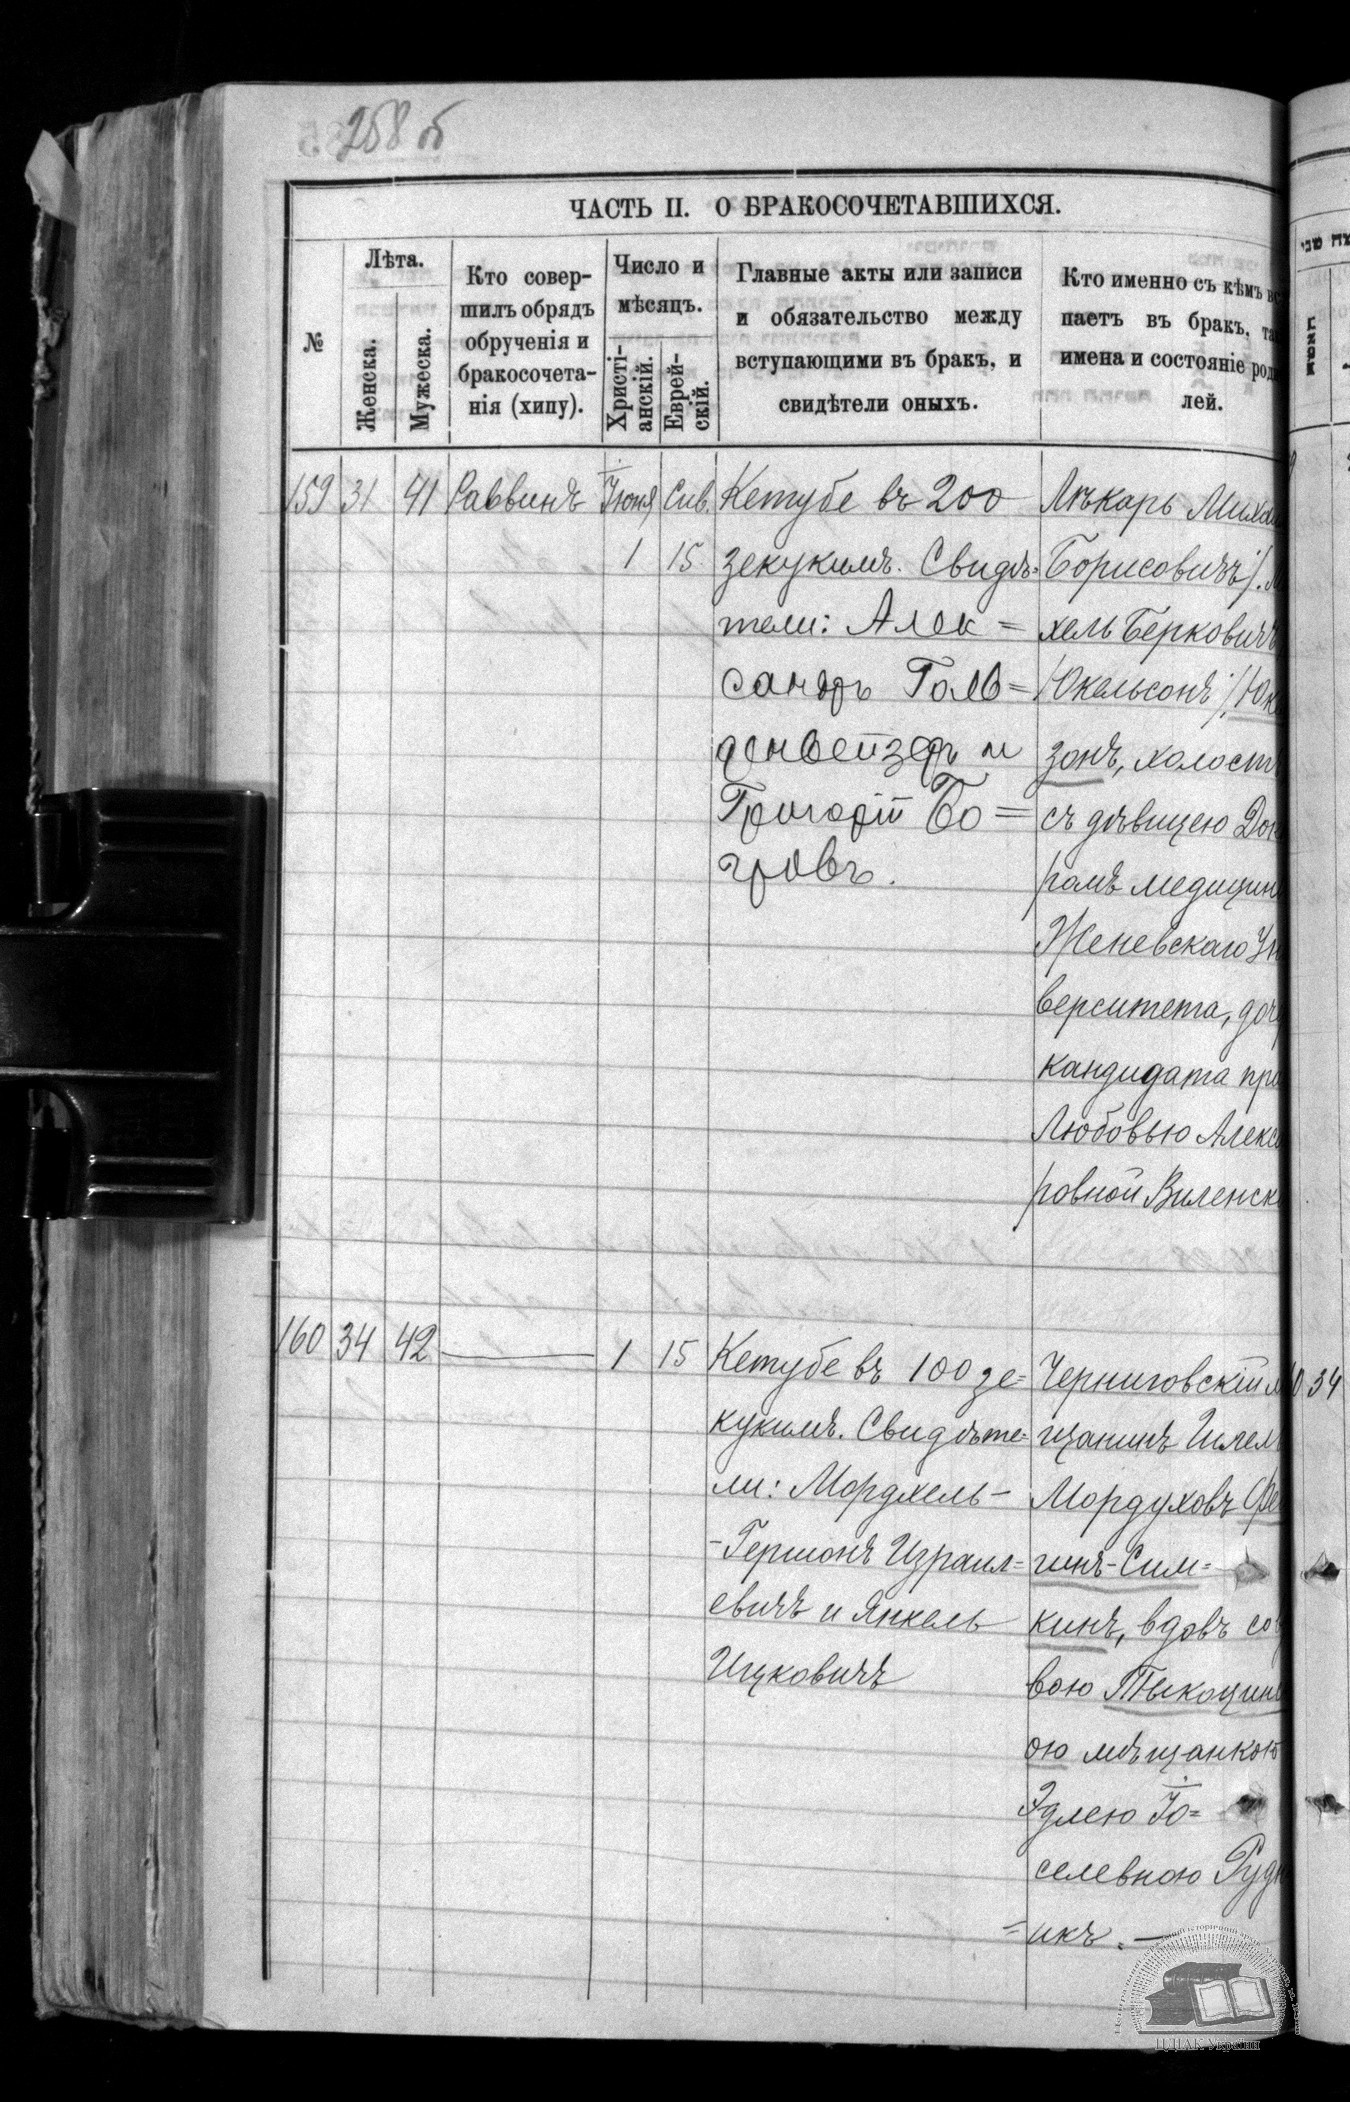 258 об
ЧАСТЬ II. О БРАКОСОЧЕТАВШИХСЯ.
№
Лѣта.
Женска.
Мужеска.
Кто совер-
шилъ обрядъ
обрученія и
бракосочета-
нія (хипу).
Число и
мѣсяцъ.
Христі-
анскій.
Еврей-
скій.
Главные акты или записи
и обязательство между
вступающими въ бракъ, и
свидѣтели оныхъ.
Кто именно съ кѣмъ вс
паетъ въ бракъ, та
имена и состояніе род
лей.
159 31 41 Раввинъ Іюня Сив.
1 15
Кетубе въ 200
зекукимъ. Свидѣ=
тели: Алек=
сандръ Голь=
денвейзеръ и
Григорій Бо=
гровъ.
Лѣкарь Миха
Борисовичъ /. М
хель Берковичъ
Юкельсонъ /, Юке
зонъ, холостъ
съ дѣвицею Док
ромъ медицин
Женевскаго Ун
верситета, доч
кандидата пра
Любовью Алекса
ровной Виленск
160 34 42 — 1 15
Кетубе въ 100 зе=
кукимъ. Свидѣте=
ли: Мордхель-
-Гершонъ Израил=
евичъ и Янкель
Ицковичъ
Черниговскій м
щанинъ Шлем
Мордуховъ Фе
гинъ-Сим=
кинъ, вдовъ со
вою Тыкоцин
ою мѣщанкою
Эдлею Іо=
селевною Рудн
=икъ. —
0 34
ЦДІАК України